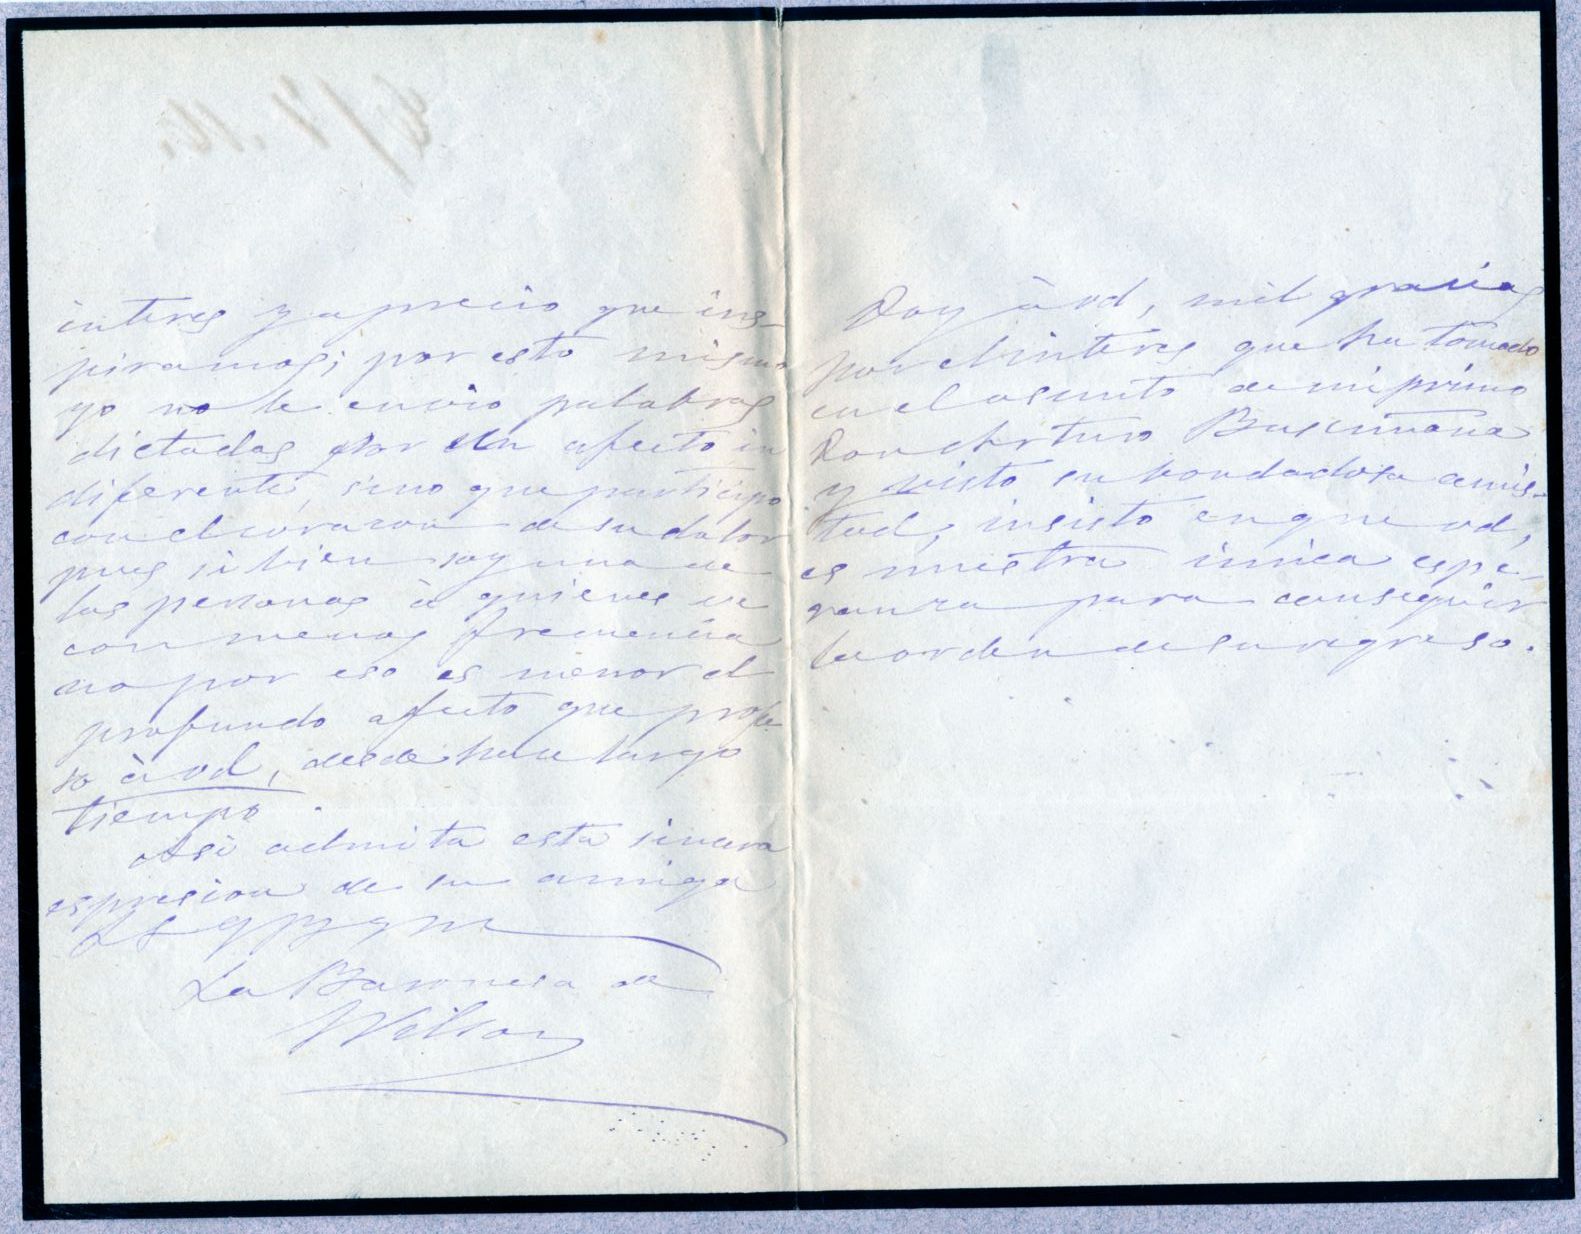 interes y aprecio que ins-
piramos; por esto mismo
yo no le envio palabras
dictadas por un afecto in
diferente, sino que participo
con el corazon de su dolor
pues si bien soy una de
las personas à quienes ve
con menos frecuencia
no por eso es menor el
profundo afecto que profe
so à vd, desde hace largo
tiempo.
Asi admita esta sincera
espresion de su amiga
La Baronesa de
Wilson
Doy à vd, mil gracias
por el interes que ha tomado
en el asunto de mi primo
Don Arturo
y visto su bondadosa amis-
tad, insisto en que vd,
es nuestra única espe-
ranza para conseguir
la orden de su regreso.